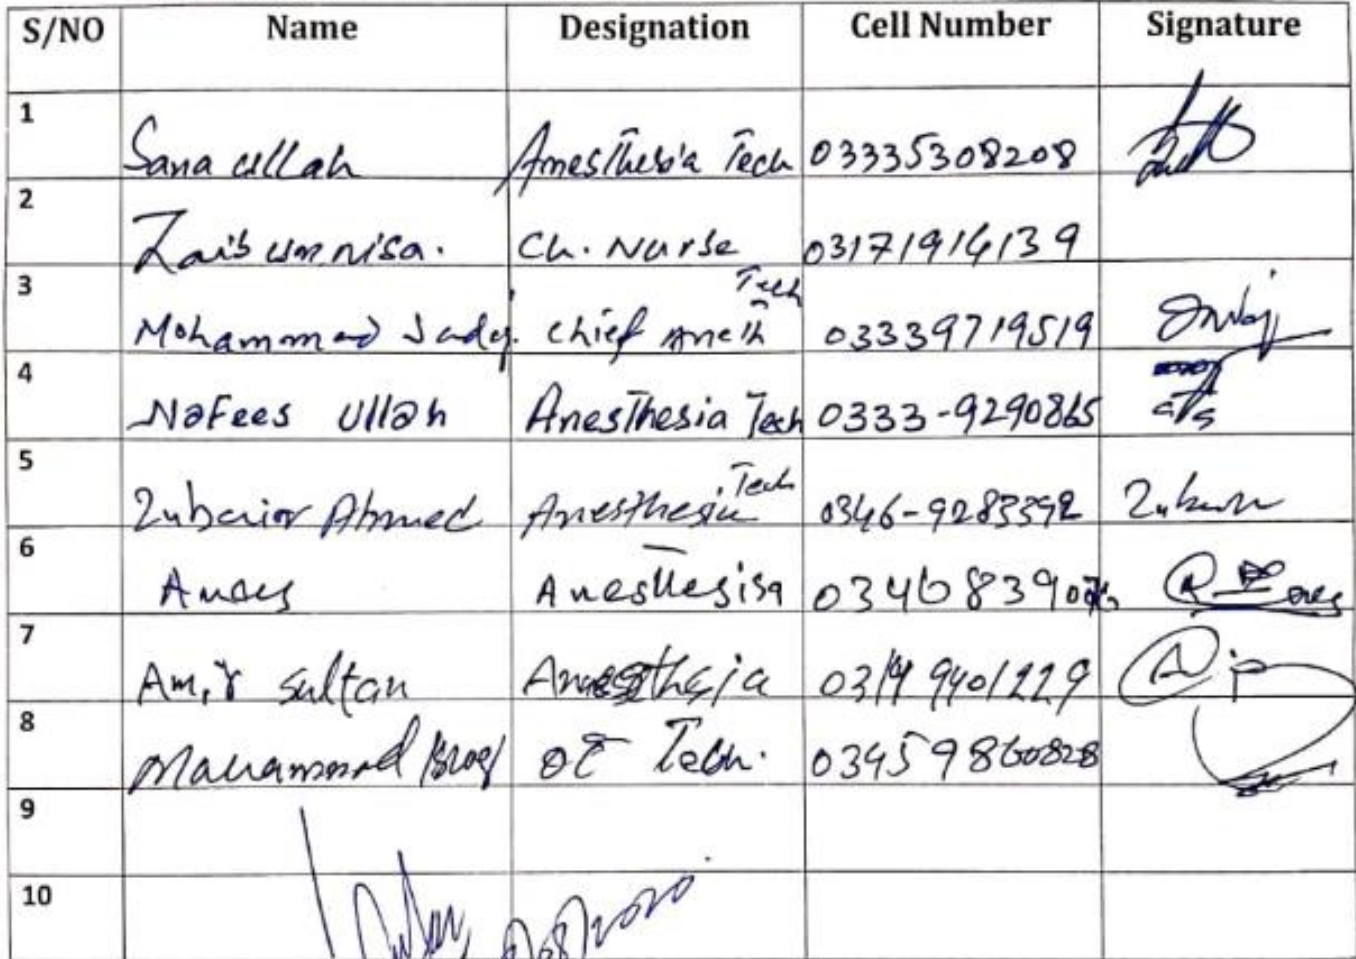 S/NO Name Designation Cell Number Signature
1 Sana ullah Anesthesia Tech 03335308208
2 Zaib un nisa. Ch. Nurse 03171914139
3 Mohammad Chief Aneth Tech 03339719519
4 Nafees Ullah Anesthesia Tech 0333-9290865
5 Zubair Ahmed Anesthesia Tech 0346-9283392
6 Anees Anesthesia
7 Amir Sultan Anesthesia
8 Muhammad OT Tech. 03459860828
9
10